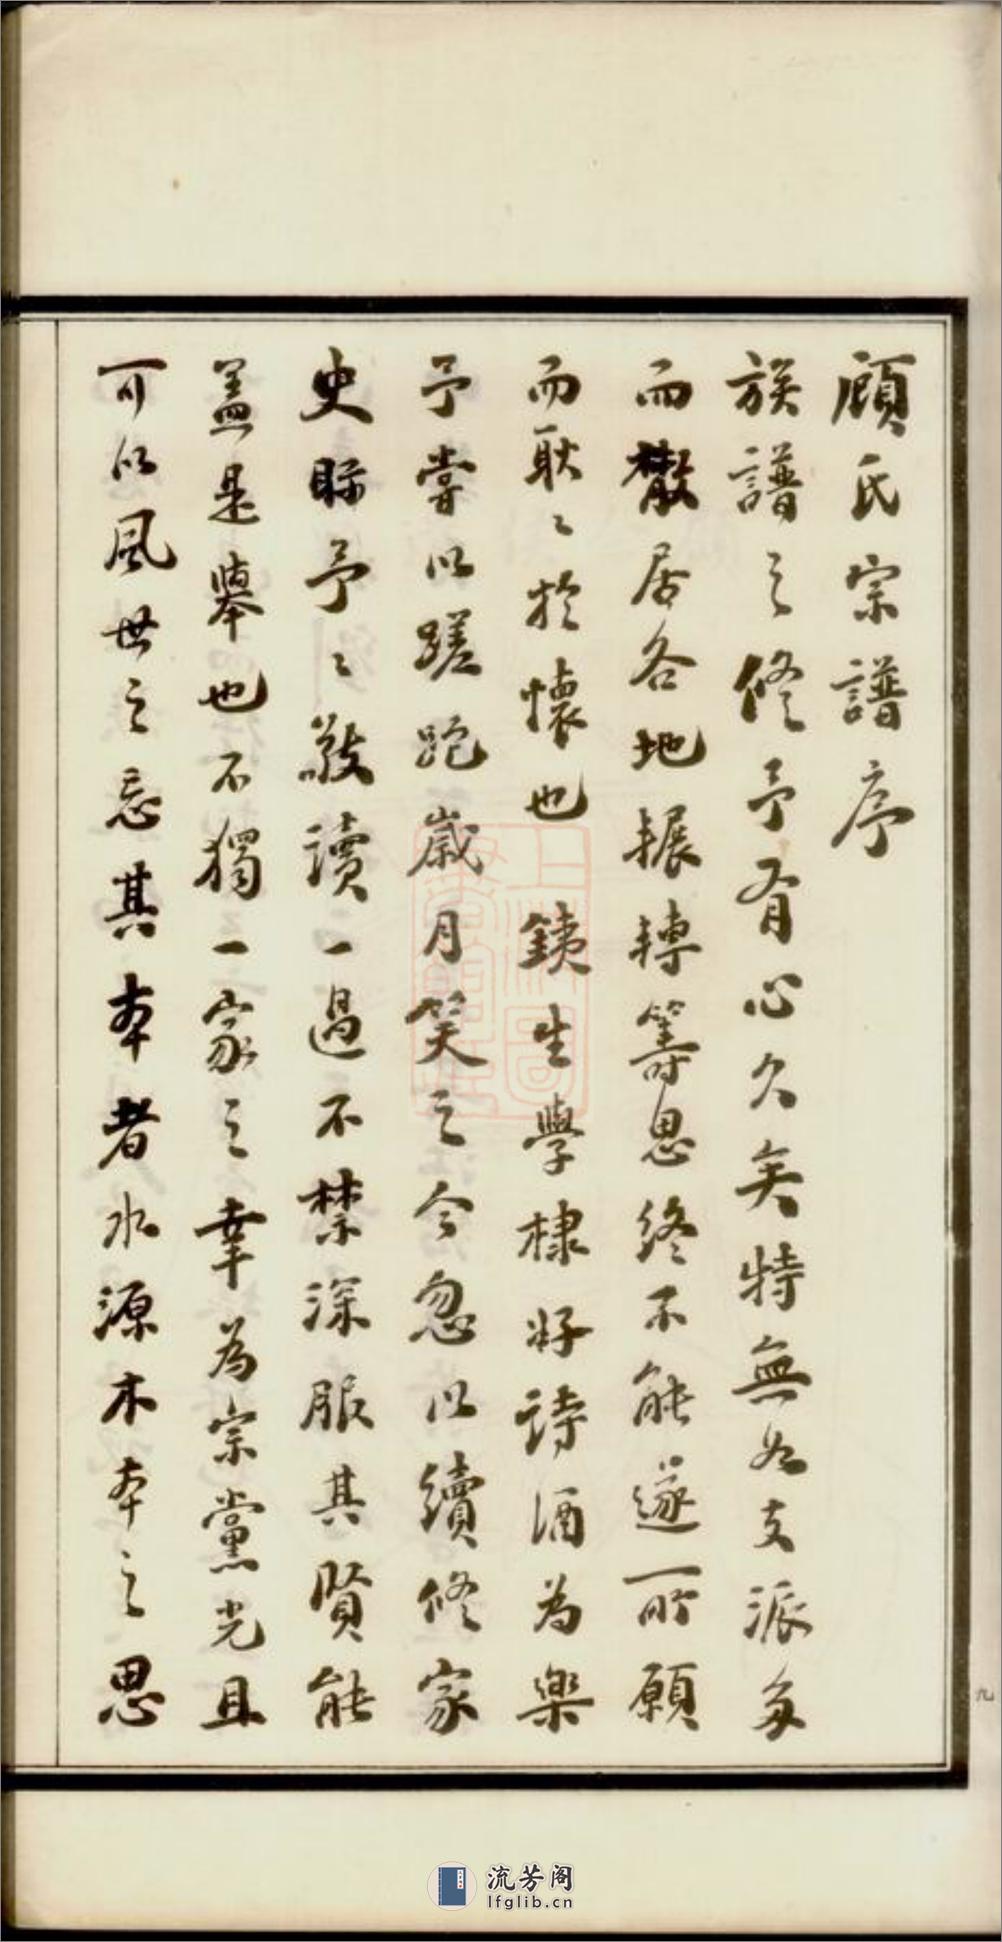 顧氏宗譜序
族譜之修予有心久矣特無如支派多
而散居各地輾轉籌思終不能遂所願
而耿〻於懷也 銕生學棣好詩酒為樂
予嘗以蹉跎歲月笑之今忽以續修家
史眎予〻敬讀一過不禁深服其賢能
盖是舉也不獨一家之幸為宗黨光且
可以風世之忘其本者水源木本之思
九
上海圖書館藏
流芳阁
lfglib.cn